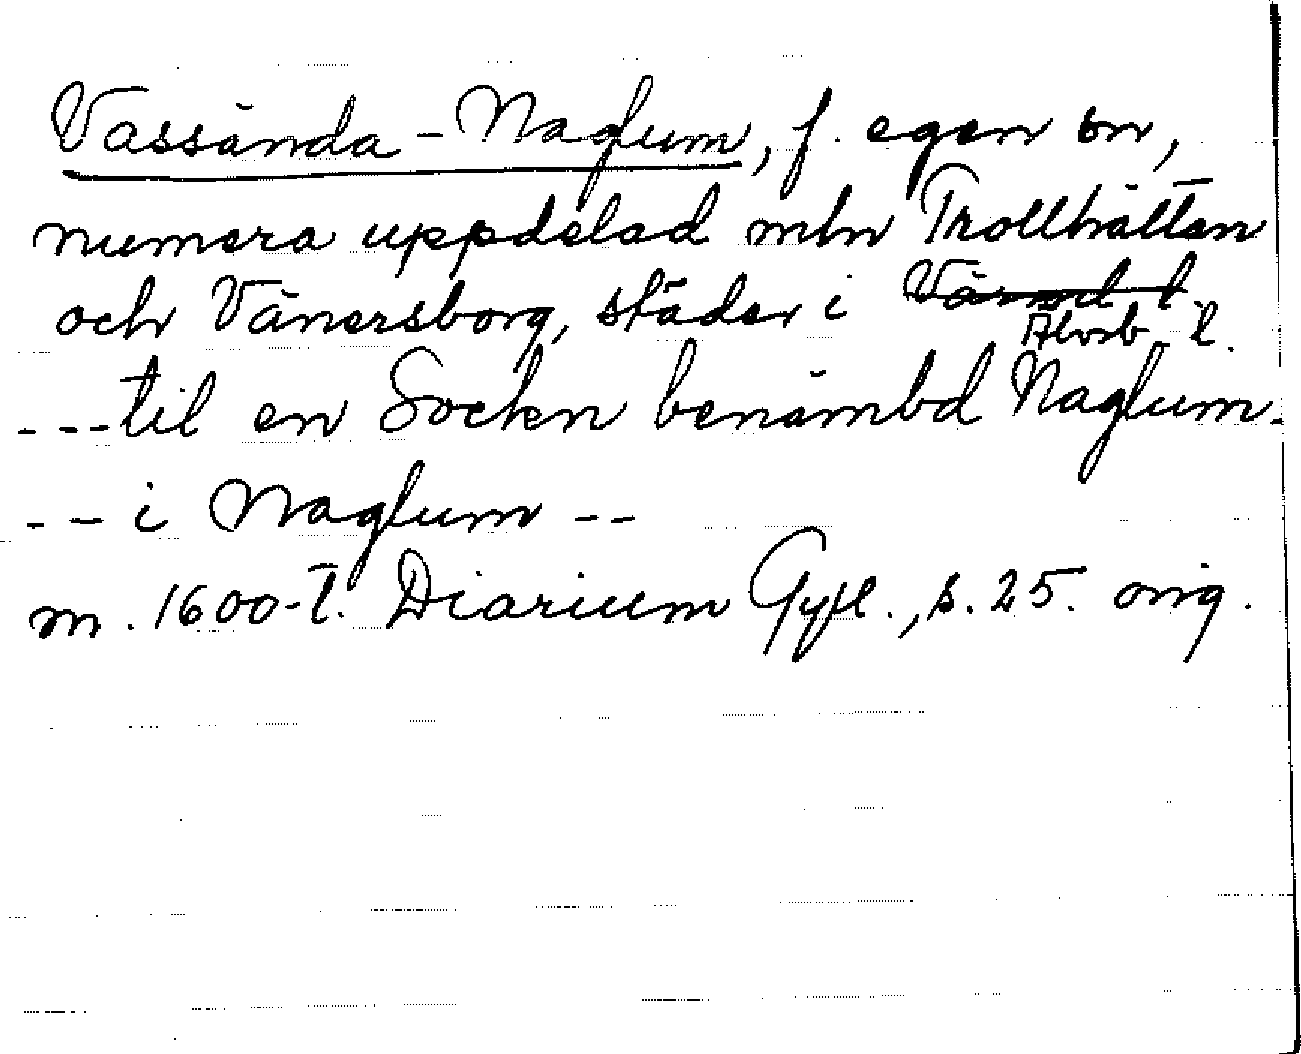 Vassända-Naglum, f. egen sn,
numera uppdelad mln Trollhättan
och Vänersborg, städer i Värml. l.
Älvsb. l.
---til en Sochn benämbd Naglum-
-- i Naglum --
m. 1600-t. Diarium Gyll., s. 25. orig.